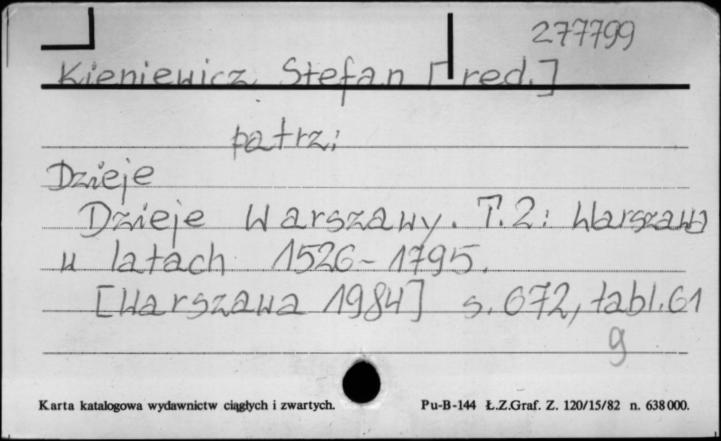 277799
Kieniewicz, Stefan [red.]
patrz:
Dzieje
Dzieje Warszawy. T.2: Warszawa
w latach 1526-1795.
[Warszawa 1984] s. 672, tabl. 61
g
Karta katalogowa wydawnictw ciągłych i zwartych. Pu-B-144 Ł.Z.Graf. Z. 120/15/82 n. 638000.